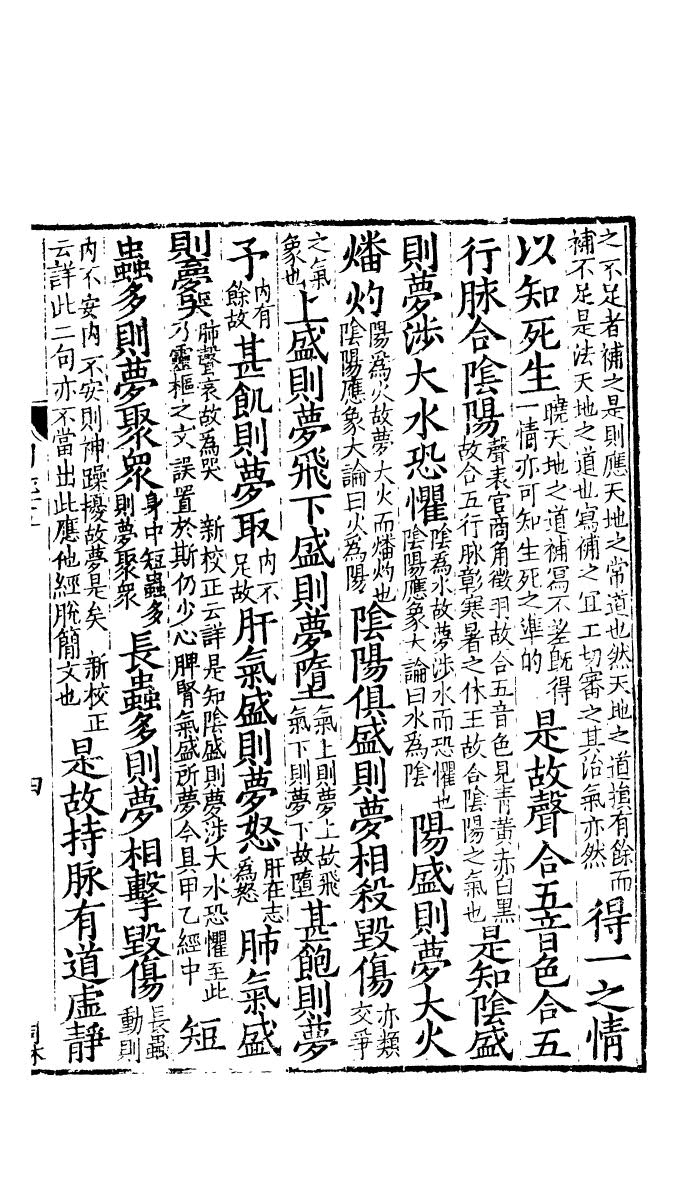 之不足者補之是則應天地之常道也然天地之道損有餘而
補不足是法天地之道也寫補之宜工切審之其治氣亦然
得一之情
以知死生
曉天地之道補寫不差旣得
一情亦可知生死之準的
是故聲合五音色合五
行脉合陰陽
聲表宮商角徵羽故合五音色見青黃赤白黑
故合五行脉彰寒暑之休王故合陰陽之氣也
是知陰盛
則夢涉大水恐懼
陰為水故夢涉水而恐懼也
陰陽應象大論曰水為陰
陽盛則夢大火
燔灼
陽為火故夢大火而燔灼也
陰陽應象大論曰火為陽
陰陽俱盛則夢相殺毀傷
亦類
交爭
之氣
象也
上盛則夢飛下盛則夢墮
氣上則夢上故飛
氣下則夢下故墮
甚飽則夢
予
內有
餘故
甚飢則夢取
內不
足故
肝氣盛則夢怒
肝在志
為怒
肺氣盛
則夢哭
肺聲哀故為哭 新校正云詳是知陰盛則夢涉大水恐懼至此
乃靈樞之文誤置於斯仍少心脾腎氣盛所夢今具甲乙經中
短
蟲多則夢聚衆
身中短蟲多
則夢聚衆
長蟲多則夢相擊毀傷
長蟲
動則
內不安內不安則神躁擾故夢是矣 新校正
云詳此二句亦不當出此應他經脫簡文也
是故持脉有道虛靜
四